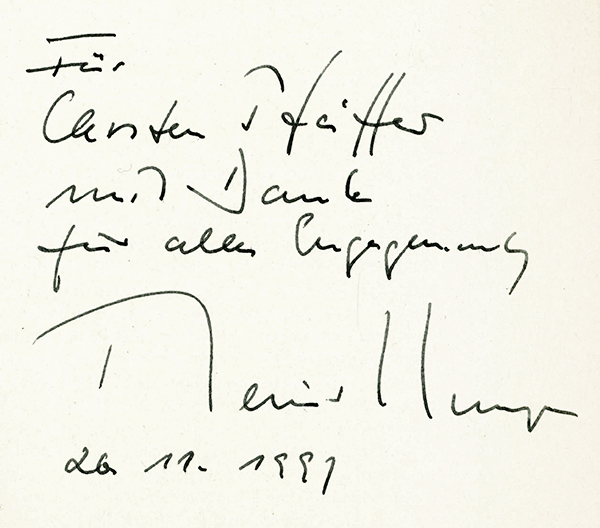 Für
Carsten Pfeiffer
mit Dank
für alles Engagement
Reiner Kunze
11. 1991